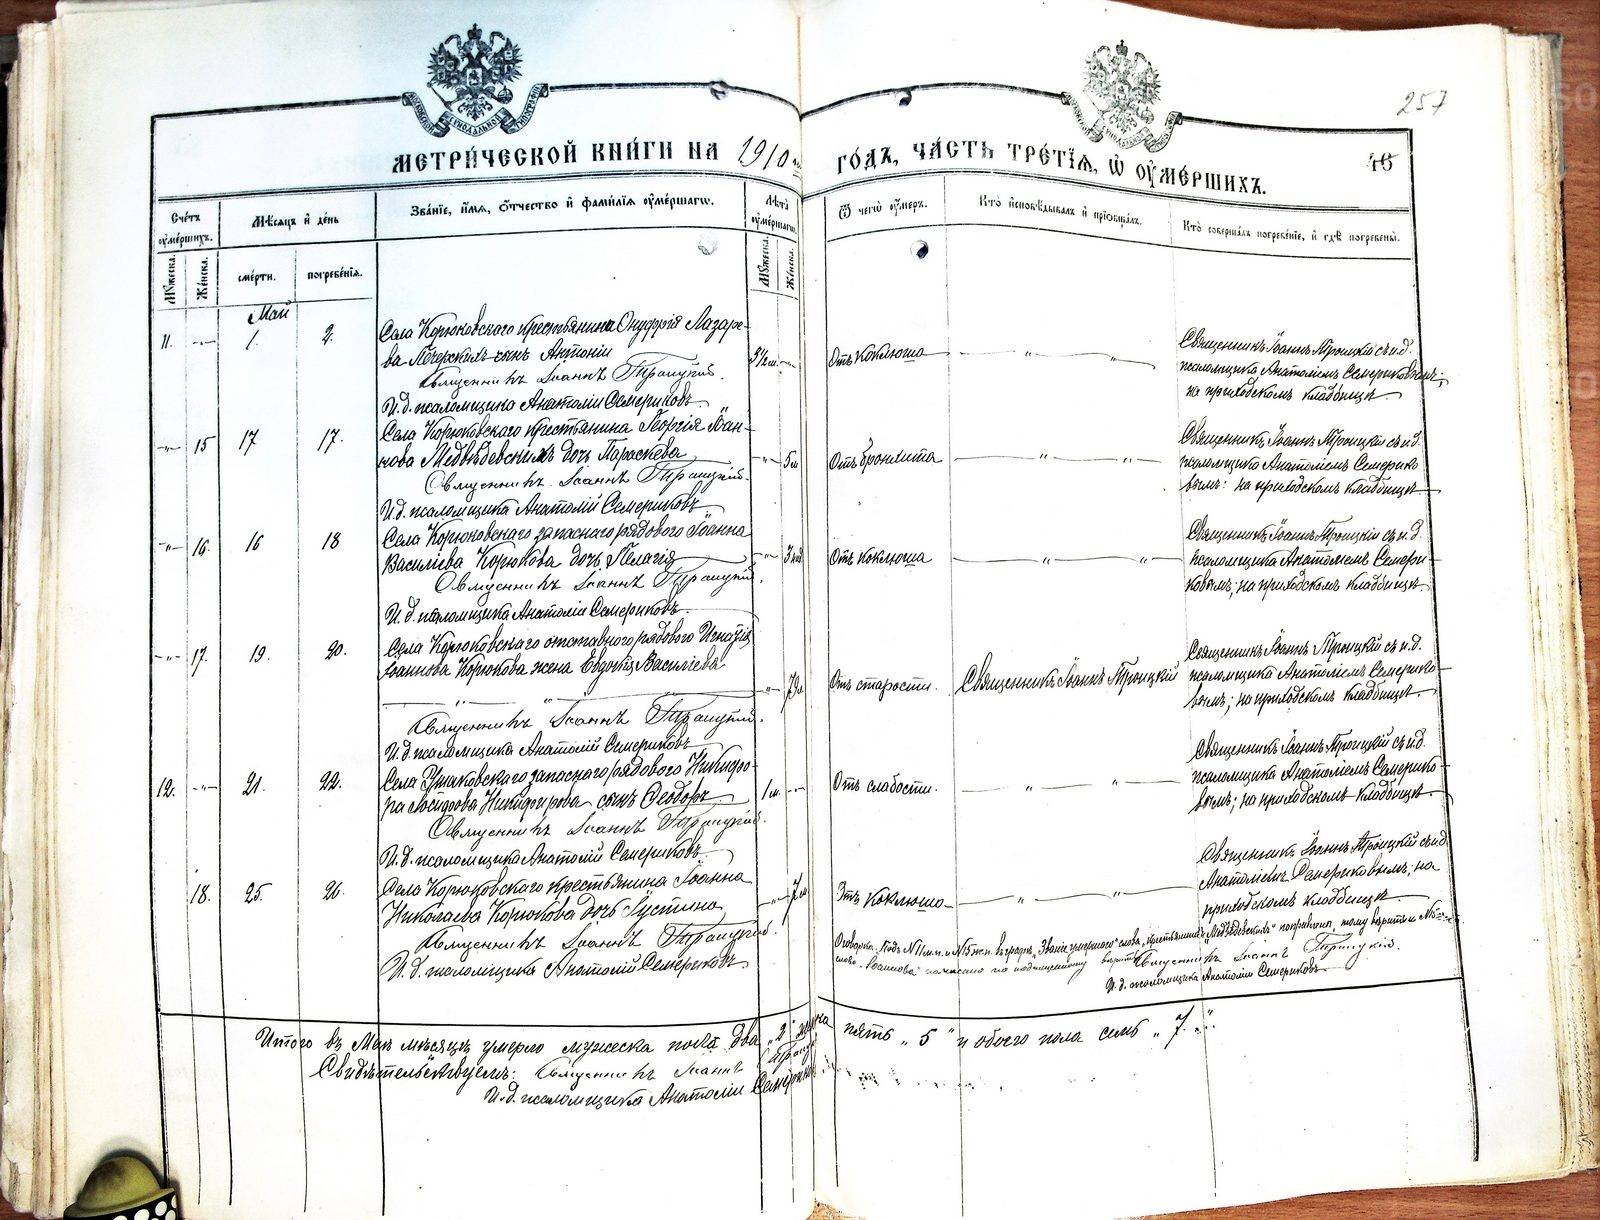 257
МЕТРИ́ЧЕСКОЙ КНИ́ГИ НА 1910 ГО́ДЪ, ЧА́СТЬ ТРЕ́ТЇѦ, Ѡ ОУ҆МЕ́РШИХЪ.
46
Сче́тъ оумершихъ.
Мѣсяцъ и день
Зва́нїе, и҆́мя, о҆́тчество и҆ фами́лїя оумершагѡ.
Лѣта оумершагѡ.
Ѿ чегѡ оумеръ.
Кто̀ и҆сповѣ́дывалъ и҆ прїѡбща́лъ.
Кто̀ соверша́лъ погребе́нїе, и҆ гдѣ̀ погребе́ны.
Мужеска.
Женска.
сме́рти.
погребе́нїя.
Мужеска.
Женска.
Май
11. -„- 1. 2.
Села Корюковскаго крестьянина Онуфрія Лазаре-
ва Печерскихъ сынъ Антоній
Священникъ Іоаннъ Троицкій.
И.д. псаломщика Анатолій Семериковъ
3½ м. -„-
Отъ коклюша
Священникъ Іоаннъ Троицкій съ и.д.
псаломщика Анатоліемъ Семериковымъ;
на приходскомъ кладбищѣ
-„- 15 17 17.
Села Корюковскаго крестьянина Георгія Іоан-
нова Медвѣдевскихъ дочь Параскева
Священникъ Іоаннъ Троицкій.
И.д. псаломщика Анатолій Семериковъ
-„- 5 м
Отъ бронхита
Священникъ Іоаннъ Троицкій съ и.д.
псаломщика Анатоліемъ Семерико
вымъ: на приходскомъ кладбищѣ
-„- 16. 16 18
Села Корюковскаго запаснаго рядового Іоанна
Василіева Корюкова дочь Пелагія
Священникъ Іоаннъ Троицкій.
И.д. псаломщика Анатолій Семериковъ.
Отъ коклюша
Священникъ Іоаннъ Троицкій съ и.д.
псаломщика Анатоліемъ Семери-
ковымъ; на приходскомъ кладбищѣ.
-„- 17. 19. 20.
Села Корюковскаго отставного рядового Игнатія
Іоаннова Корюкова жена Евдокія Василіева
Священникъ Іоаннъ Троицкій.
И.д. псаломщика Анатолій Семериковъ
Отъ старости.
Священникъ Іоаннъ Троицкій
Священникъ Іоаннъ Троицкій съ и.д.
псаломщика Анатоліемъ Семерико-
вымъ; на приходскомъ кладбищѣ.
12. -„- 21. 22.
Села запаснаго рядового Никифо-
ра Никифорова сынъ Ѳеодоръ
Священникъ Іоаннъ Троицкій.
И.д. псаломщика Анатолій Семериковъ
1 м. -„-
Отъ слабости.
Священникъ Іоаннъ Троицкій съ и.д.
псаломщика Анатоліемъ Семерико-
вымъ; на приходскомъ кладбищѣ.
18. 25. 26.
Села Корюковскаго крестьянина Іоанна
Николаева Корюкова дочь Іустина
Священникъ Іоаннъ Троицкій.
И.д. псаломщика Анатолій Семериковъ
-„- 7 м
Отъ коклюша
Священникъ Іоаннъ Троицкій съ и.д.
Анатоліемъ Семериковымъ; на
приходскомъ кладбищѣ
Оговорка. Подъ N 11 м.п. и N 15 ж.п. въ графѣ „Званіе умершаго" слова „Медвѣдевскихъ" поправлено, тому вѣрить и N 15
слово „Іоаннова" написано по подчищенному вѣрить Священникъ Іоаннъ Троицкій.
И.д. псаломщика Анатолій Семериковъ
Итого въ Маѣ мѣсяцѣ умерло мужеска пола два „2" женска пять „5" и обоего пола семь „7".
Свидѣтельствуемъ: Священникъ Іоаннъ Троицкій
И.д. псаломщика Анатолій Семериковъ